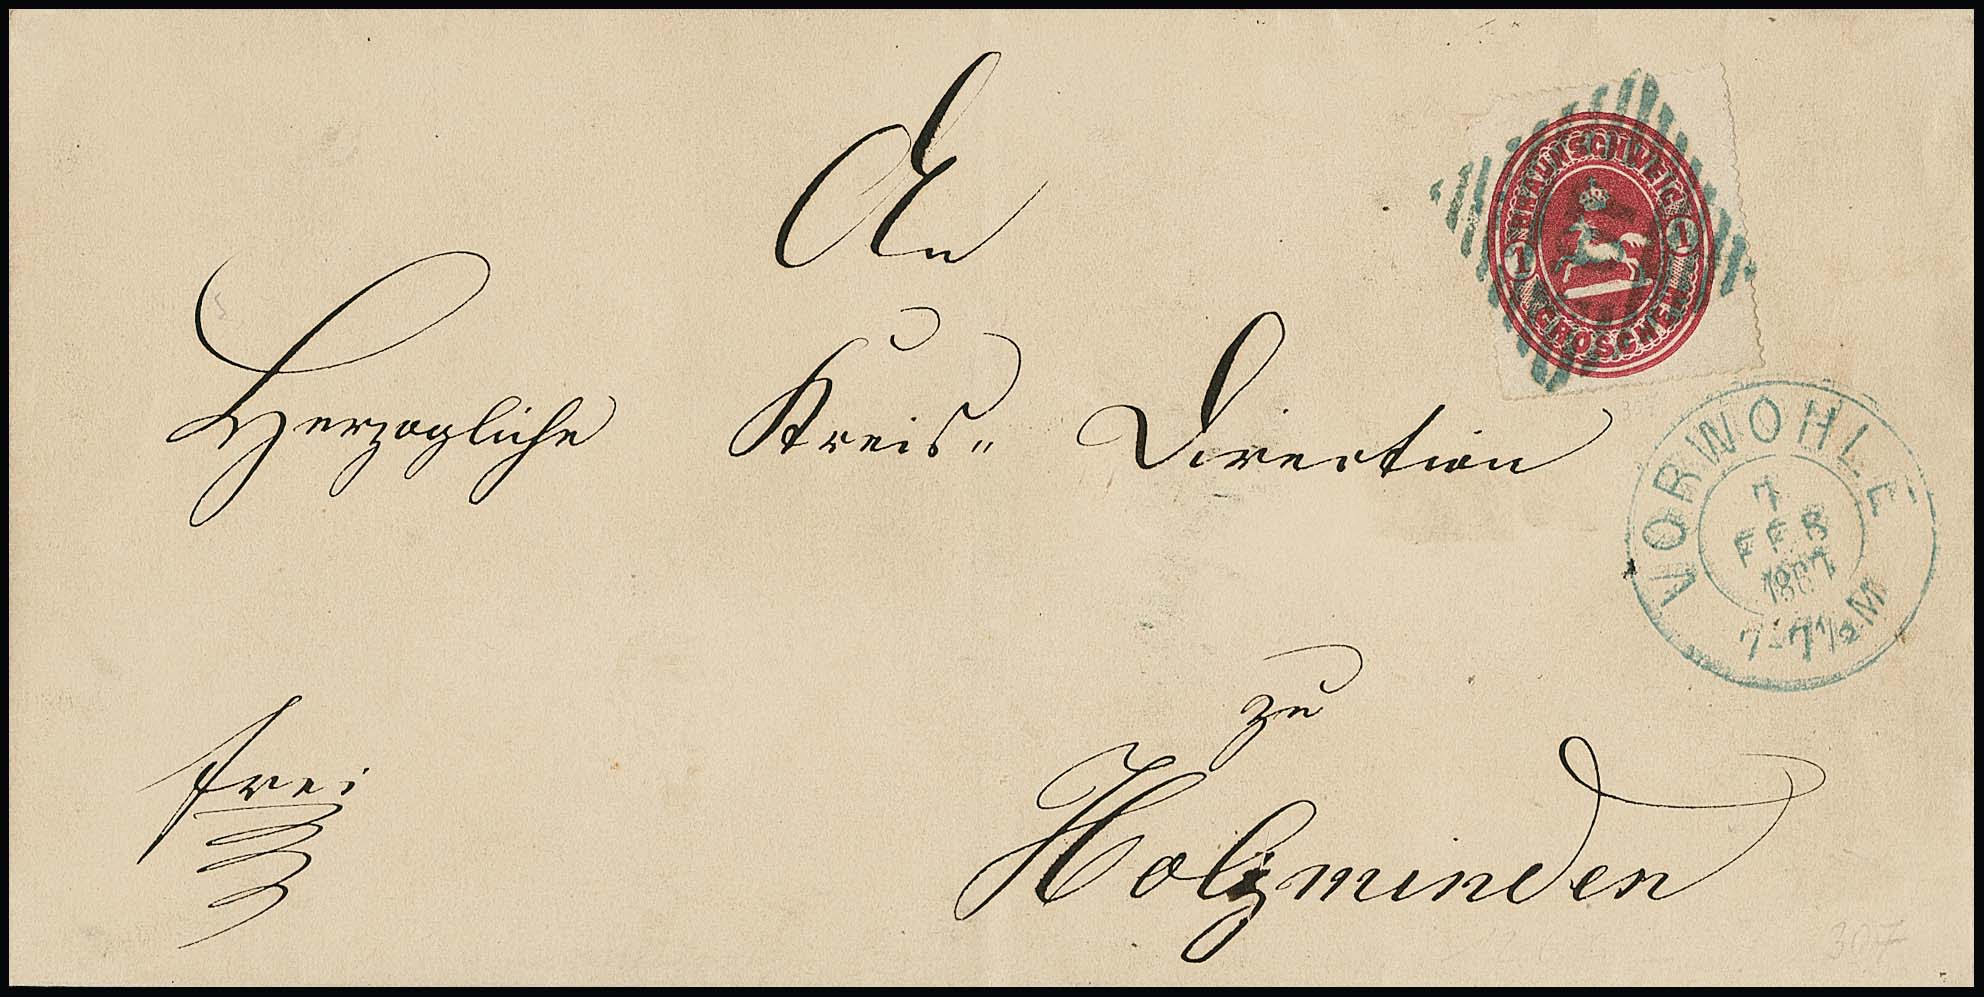 An
BRAUNSCHWEIG
1 1
GROSCHEN
Herzogliche Kreis„ Direction
VORWOHLE
7
FEB
1867
7-7½M
zu
frei
Holzminden
307